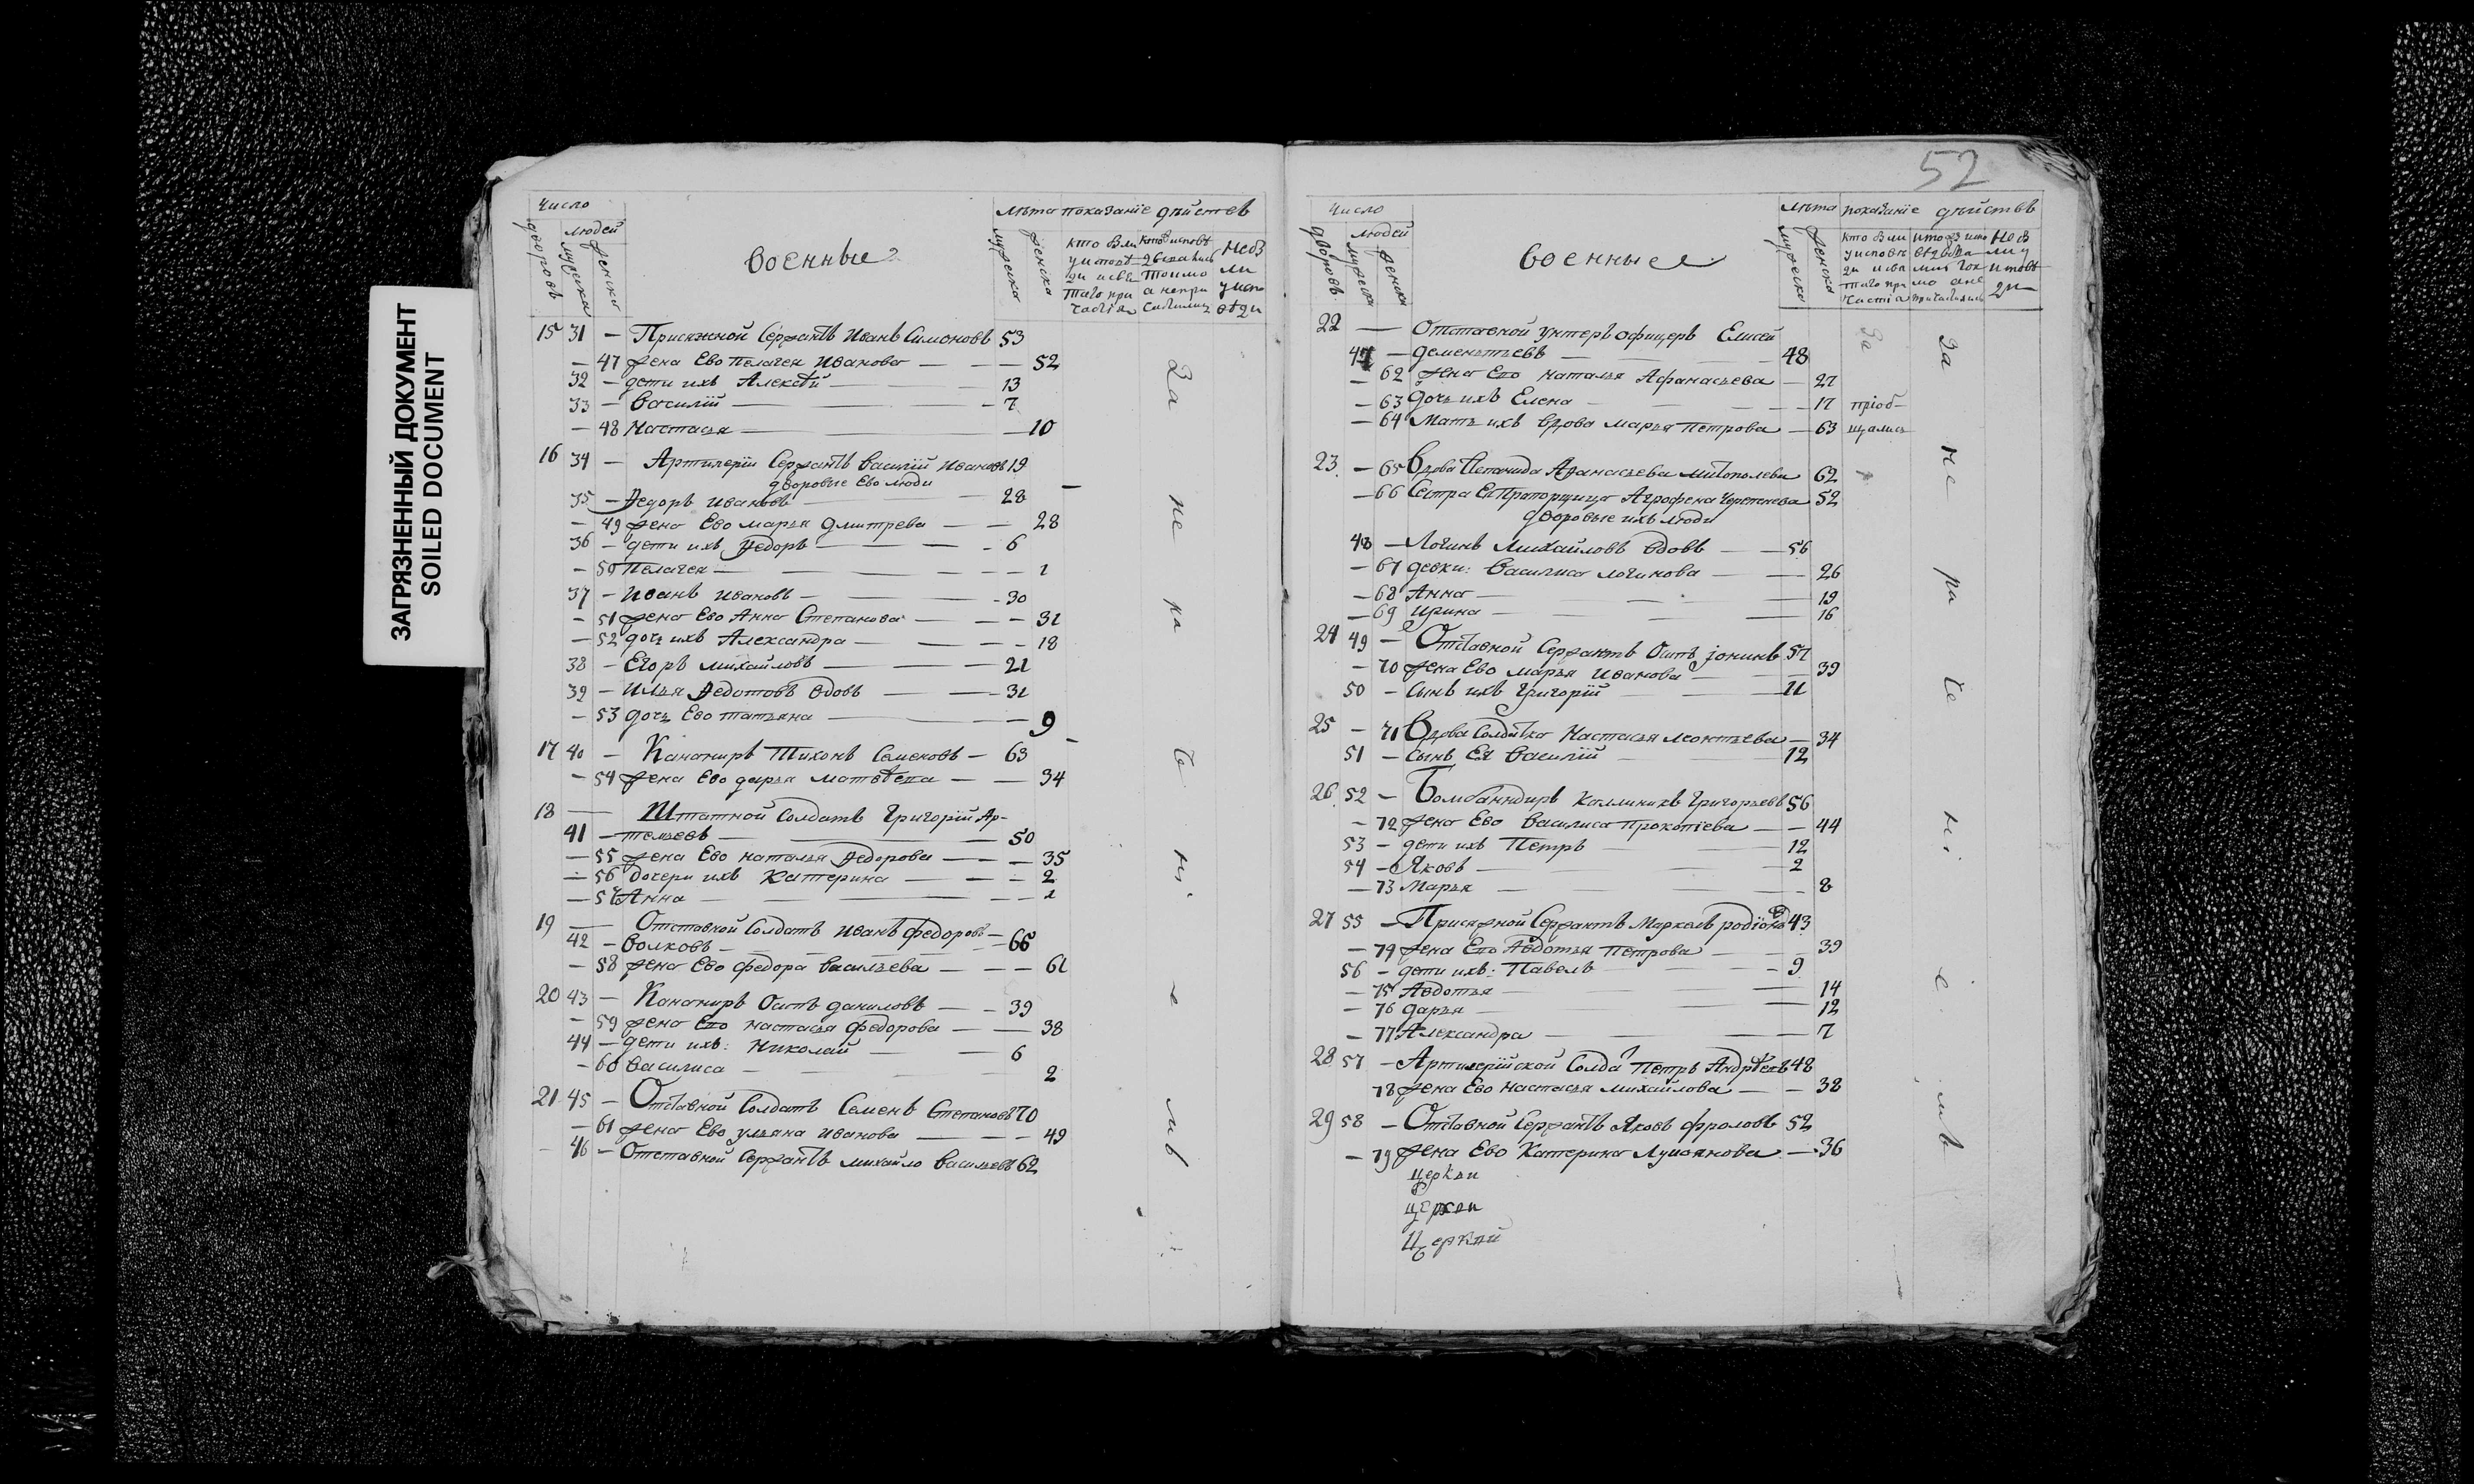 ЗАГРЯЗНЕННЫЙ ДОКУМЕНТ
SOILED DOCUMENT
Число
людей
дворовъ
мужеска
женска
военные
лѣта
мужеска
женска
показанïе дѣйствъ
15 31 — Присяжной Сержантъ Иванъ Симоновъ 53
— 47 жена Ево Пелагея Иванова — 52
32 — дети ихъ Алексѣй — 13
33 — Василïй — 7
— 48 Настасья — 10
16 34 — Артилерïи Сержантъ Василïй Ивановъ 19
дворовые Ево люди
35 — Ѳедоръ Ивановъ — 28
— 49 жена Ево марья дмитрева — 28
36 — дети ихъ Ѳедоръ — 6
— 50 Пелагея — 1
37 — Иванъ Ивановъ — 30
— 51 жена Ево Анна Степанова — 31
— 52 дочь ихъ Александра — 18
38 — Егоръ михайловъ — 21
39 — Илья Ѳедотовъ вдовъ — 31
— 53 дочь Ево татьяна — 9
17 40 — Канониръ Тихонъ Семеновъ — 63
— 54 жена Ево дарья матвѣева — 34
18 — Штатной Солдатъ Григорïй Ар-
41 — темьевъ — 50
— 55 жена Ево наталья Ѳедорова — 35
— 56 дочери ихъ Катерина — 2
— 57 Анна — 1
19 — Отставной Солдатъ Иванъ федоровъ —
42 — волковъ — 66
— 58 жена Ево федора васильева — 61
20 43 — Канониръ Осипъ даниловъ — 39
— 59 жена Ево настасья федорова — 38
44 — дети ихъ: Николай — 6
— 60 василиса — 2
21 45 — Отставной Солдатъ Семенъ Степановъ 70
— 61 жена Ево ульяна иванова — 49
46 — Отставной Сержантъ михайло васильевъ 62
За не ра че нï е мъ
52
Число
людей
дворовъ
мужеска
женска
военные
лѣта
мужеска
женска
показанïе дѣйствъ
22 — Отставной унтеръ офицеръ Елисей
47 — дементьевъ — 48
— 62 жена Ево наталья Афанасьева — 27
— 63 дочь ихъ Елена — 17
— 64 Мать ихъ вдова марья петрова — 63
За
прïоб-
щались
23 — 65 Вдова Степанида Афанасьева 62
— 66 Сестра Ея Прапорщица Агрофена 52
дворовые ихъ люди
48 — Логинъ михайловъ вдовъ — 56
— 67 девки: василиса логинова — 26
— 68 Анна — 19
— 69 Ирина — 16
24 49 — Отставной Сержантъ Осипъ јонинъ 57
— 70 жена Ево марья иванова — 39
50 — Сынъ ихъ Григорïй — 11
25 — 71 Вдова Солдатка Настасья леонтьева — 34
51 — Сынъ Ея василïй — 12
26 52 — Бомбандиръ Каллиникъ Григорьевъ 56
— 72 жена Ево василиса прокопïева — 44
53 — дети ихъ Петръ — 12
54 — Яковъ — 2
— 73 Марья — 8
27 55 — Присяжной Сержантъ Маркелъ родïоновъ 43
— 74 жена Ево Авдотья петрова — 39
56 — дети ихъ: Павелъ — 9
— 75 Авдотья — 14
— 76 дарья — 12
— 77 Александра — 7
28 57 — Артилерïйской Солдатъ Петръ Андрѣевъ 48
78 жена Ево настасья михайлова — 38
29 58 — Отставной Сержантъ Яковъ фроловъ 52
— 79 жена Ево Катерина Лукоянова — 36
церкви
церкви
Церкви
За не ра че нï е мъ